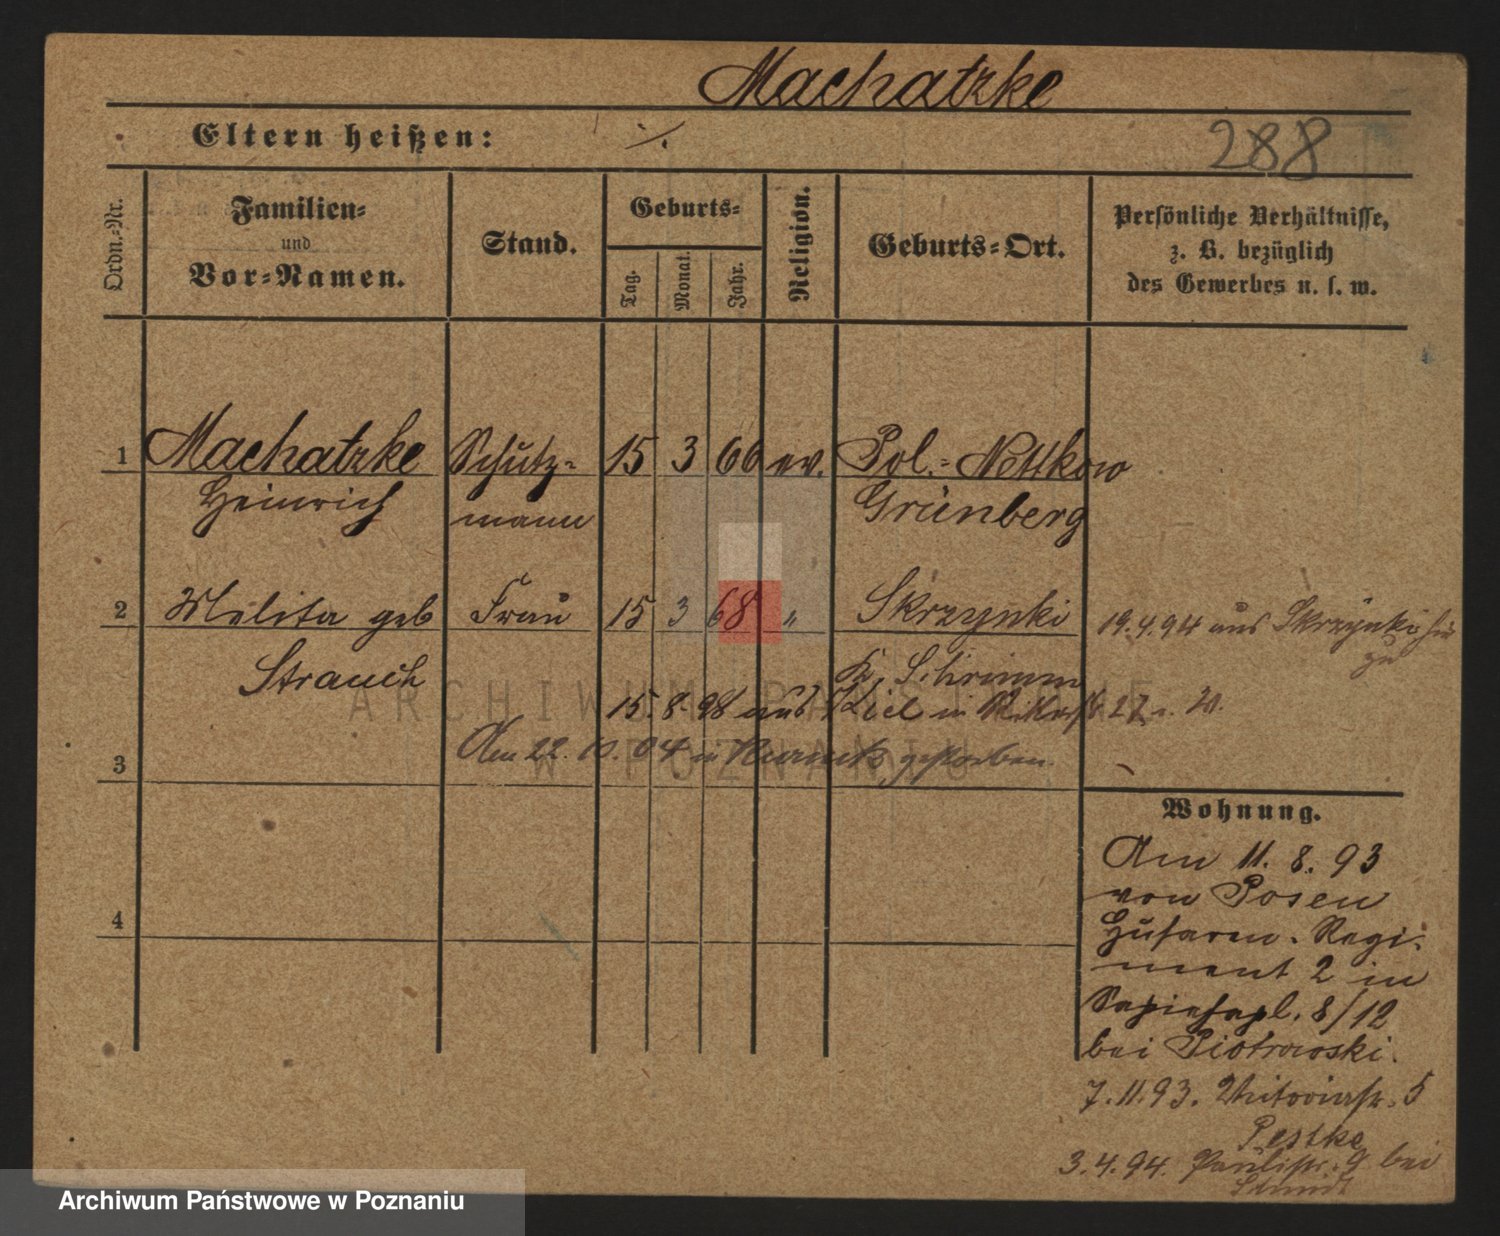 Machatzke
Eltern heißen: ·/.
288
Ordn.-Nr.
Familien-
und
Vor-Namen.
Stand.
Geburts-
Tag.
Monat.
Jahr.
Religion.
Geburts-Ort.
Persönliche Verhältnisse,
z. B. bezüglich
des Gewerbes u. s. w.
1 Machatzke Schutz- 15 3 66 ev. Pol.- Nettkow
Heinrich mann Grünberg
2 Melita geb Frau 15 3 68 " Skrzynki
19.4.94 aus Skrzynki hier
zu
Strauch K. Schrimm
15.8.98 aus Kiel in 27
3 Am 22.10.04 in Kurnik gestorben
Wohnung.
Am 11. 8. 93
von Posen
Husaren-Regi-
ment 2 in
4
Sapiehapl. 8/12
bei Piotrowski.
7.11.93. Victoriastr. 5
Pestke
3.4.94. Paulistr. 9 bei
Schmidt
ARCHIWUM PAŃSTWOWE
W POZNANIU
Archiwum Państwowe w Poznaniu